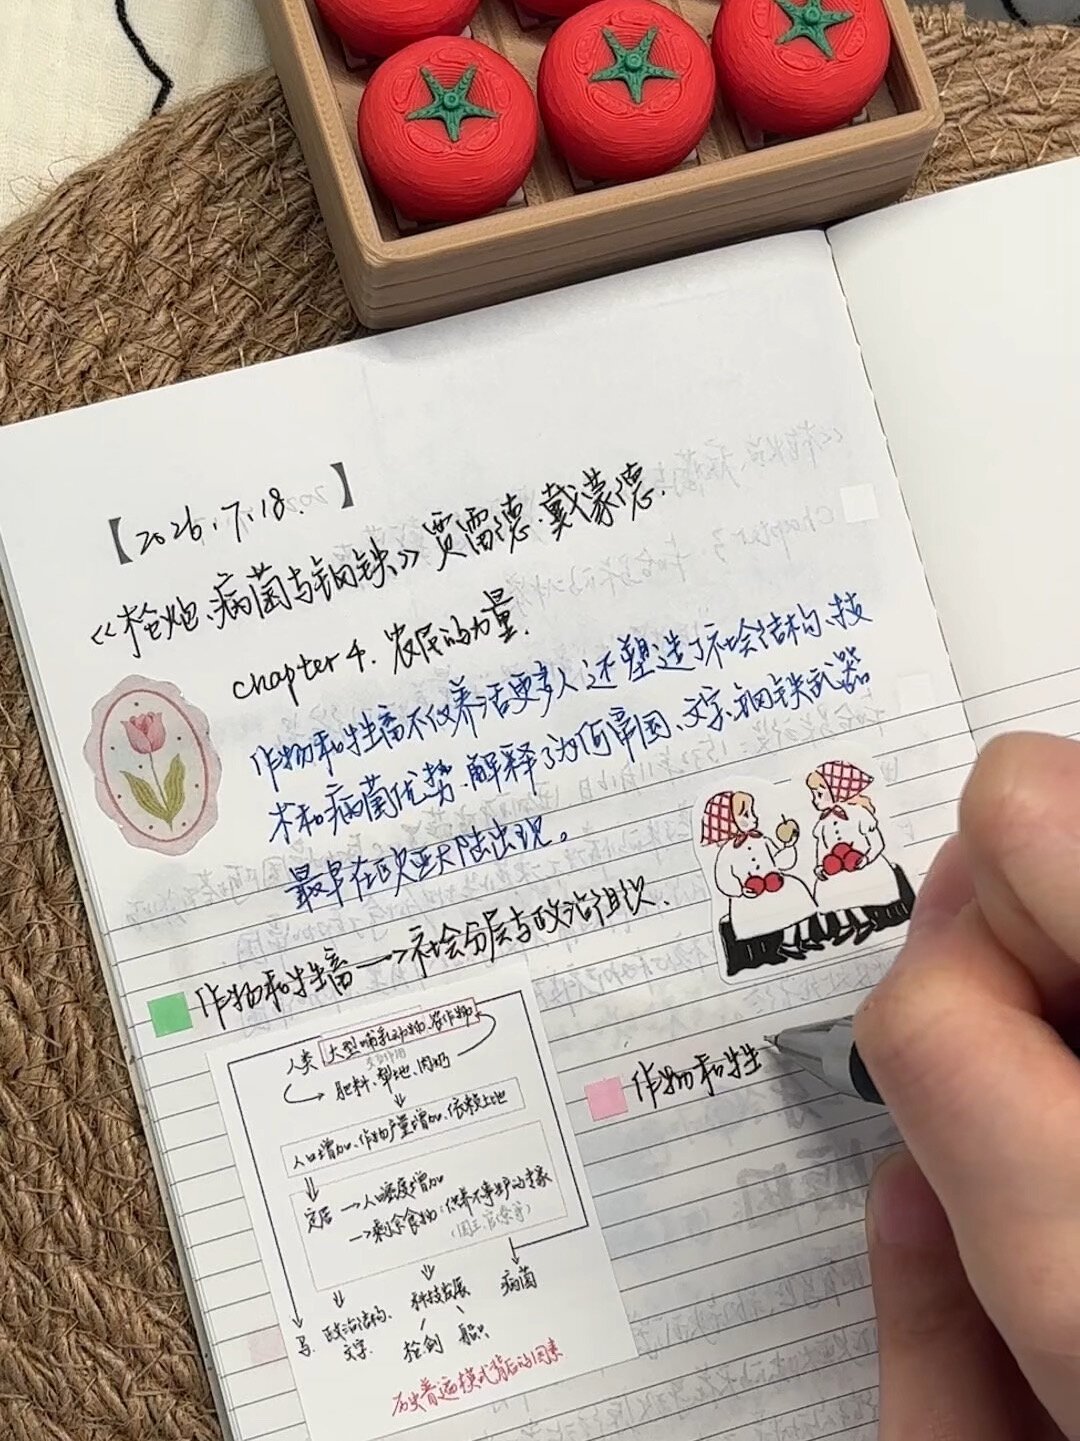 【2026.7.18.】
《枪炮、病菌与钢铁》贾雷德·戴蒙德.
chapter 4. 农民的力量.
作物和牲畜不仅养活更多人,还塑造了社会结构、技
术和病菌优势,解释了为何帝国、文字、钢铁武器
最早在欧亚大陆出现。
作物和牲畜→社会分层与政治组织.
人类 大型哺乳动物、农作物
肥料、犁地、肉奶
人口增加、作物产量增加、依赖土地
定居 →人口密度增加
→剩余食物:供养不事生产的专家
马 政治结构、
文字.
科技发展
枪剑 船只
病菌
历史普遍模式背后的因素
作物和牲